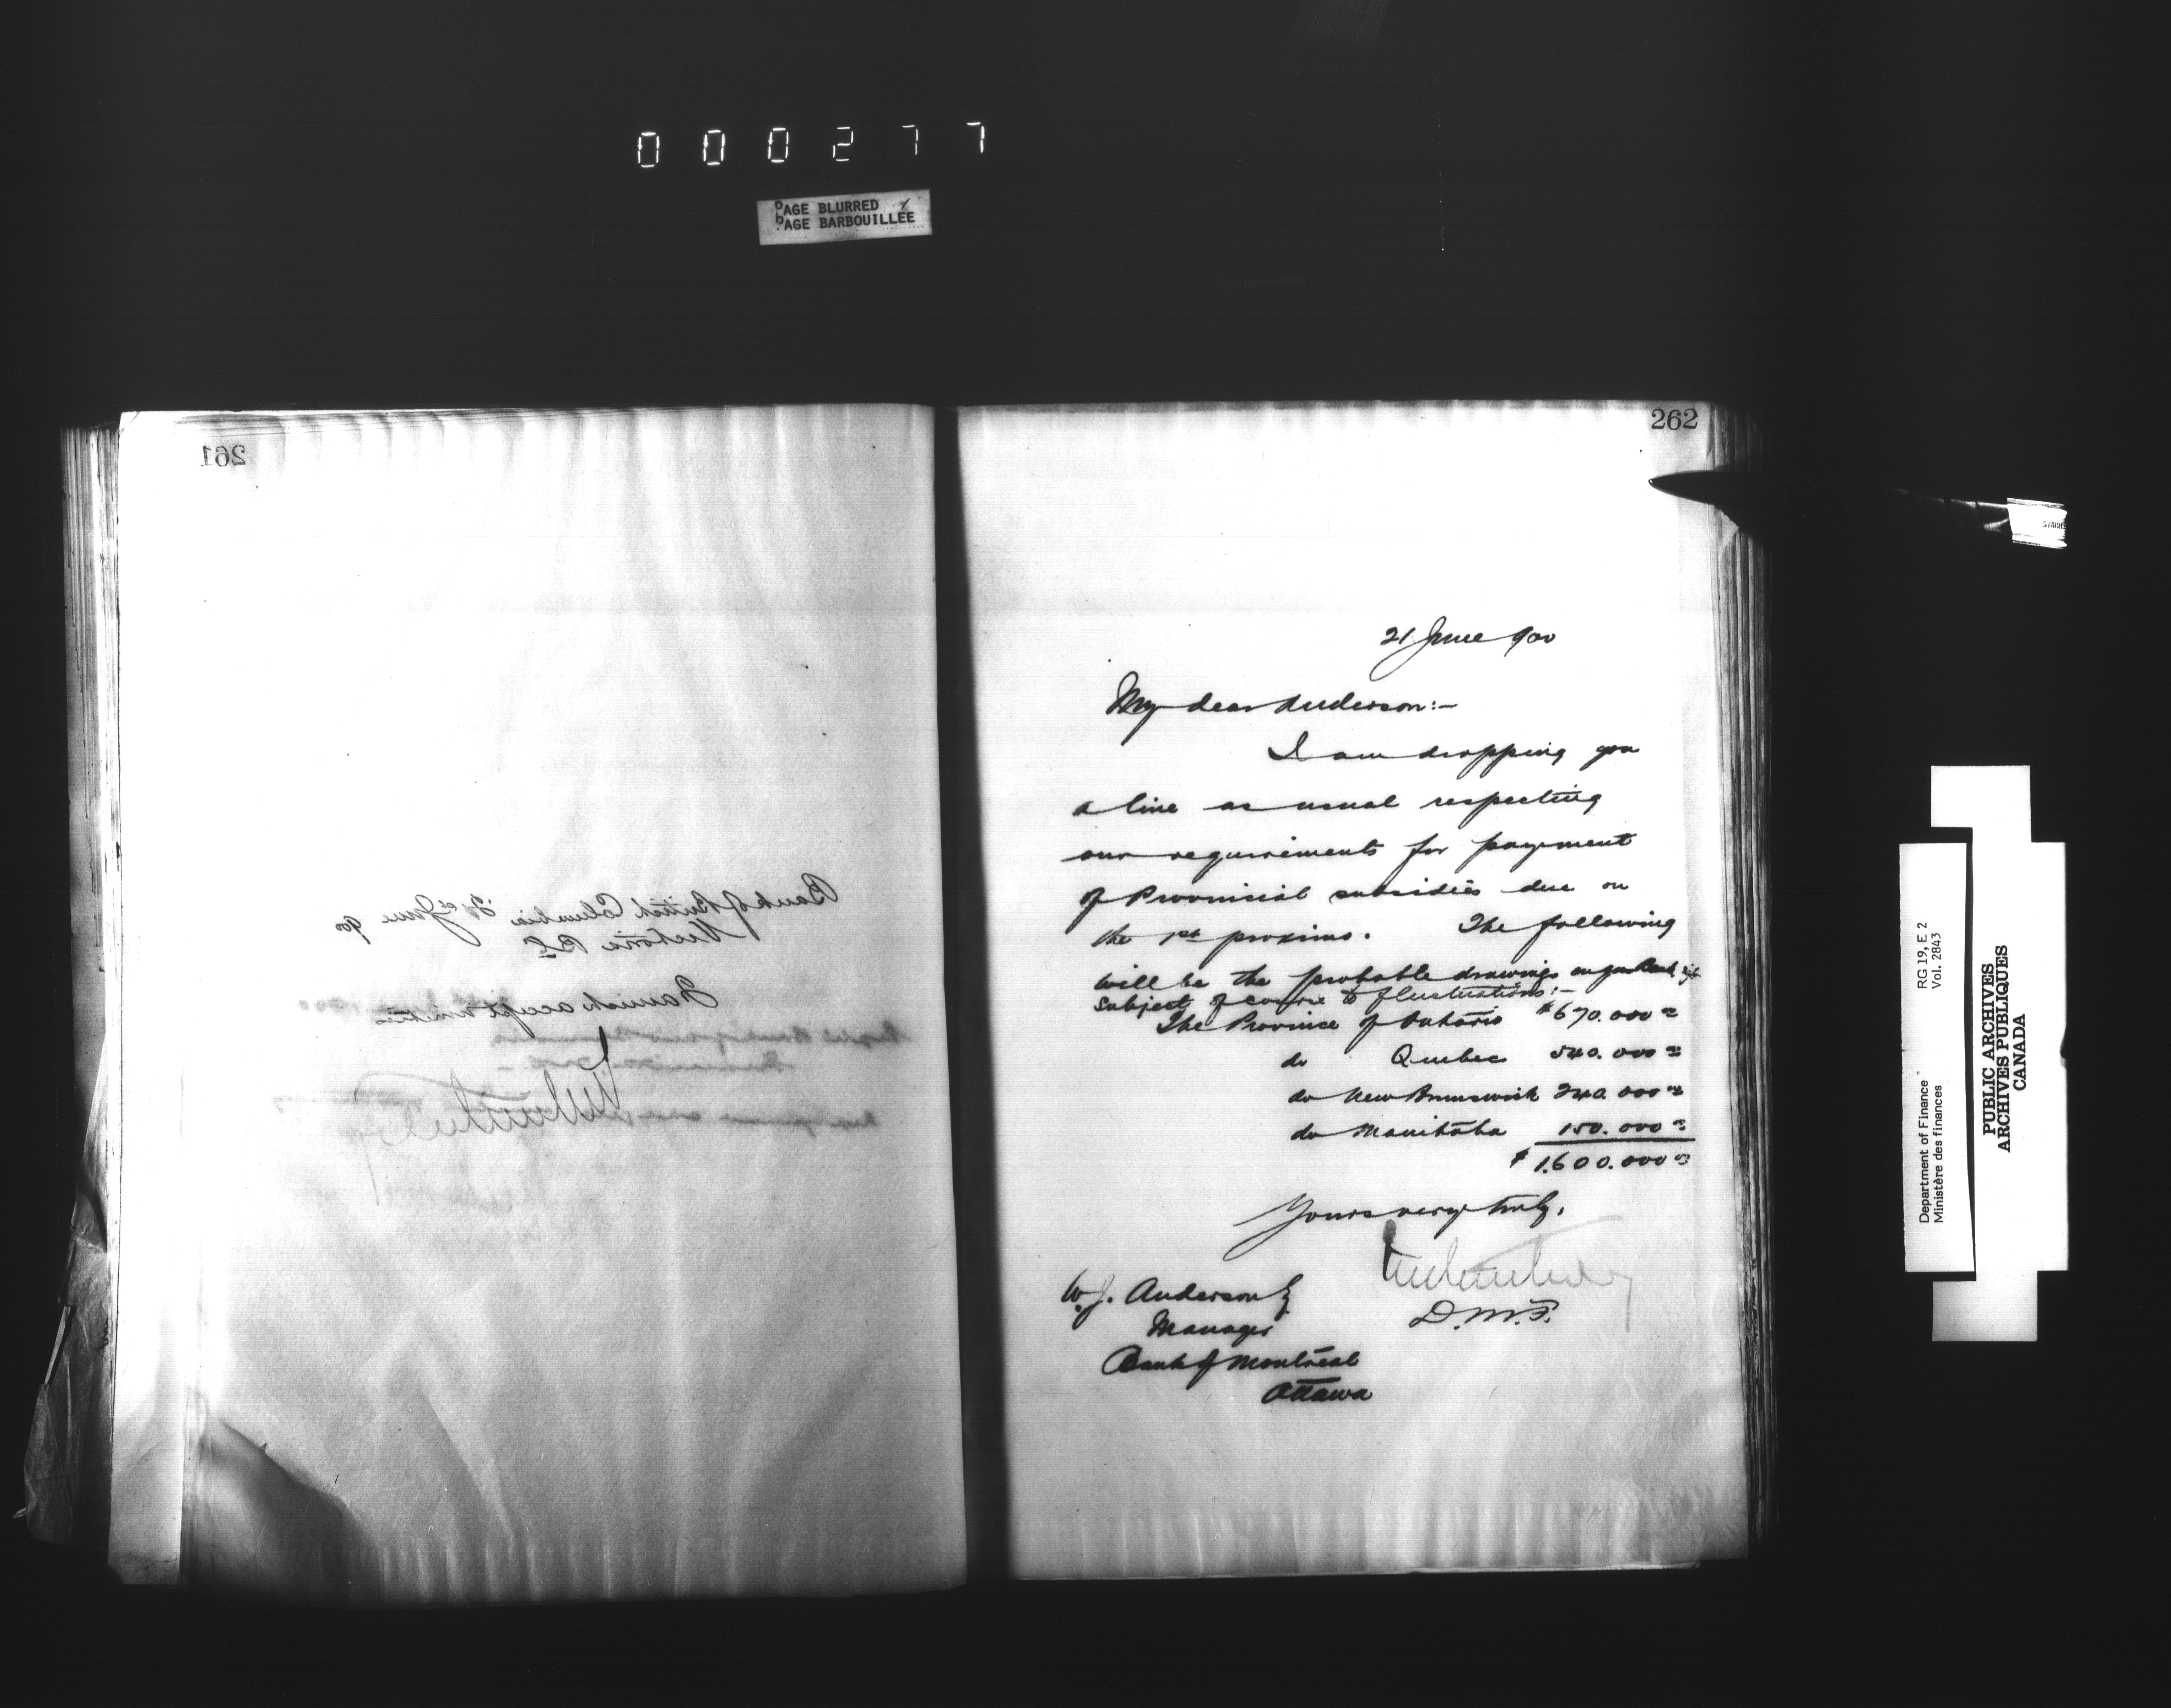 000277
PAGE BLURRED
PAGE BARBOUILLÉE
261
Bank of British Columbia 20 June 900
Victoria BC
262
21 June 900
My dear Anderson:-
I am dropping you
a line as usual respecting
our requirements for payment
of Provincial subsidies due on
the 1st proximo. The following
will be the probable drawings on your Bank
subject of course to fluctuations:-
The Province of Ontario $670.000 00
do Quebec 540.000 00
do New Brunswick 240.000 00
do Manitoba 150.000 00
$1.600.000 00
Yours very truly,
D.M.F.
W.J. Anderson Esq
Manager
Bank of Montreal
Ottawa
RG 19, E 2
Vol. 2843
Department of Finance
Ministère des finances
PUBLIC ARCHIVES
ARCHIVES PUBLIQUES
CANADA